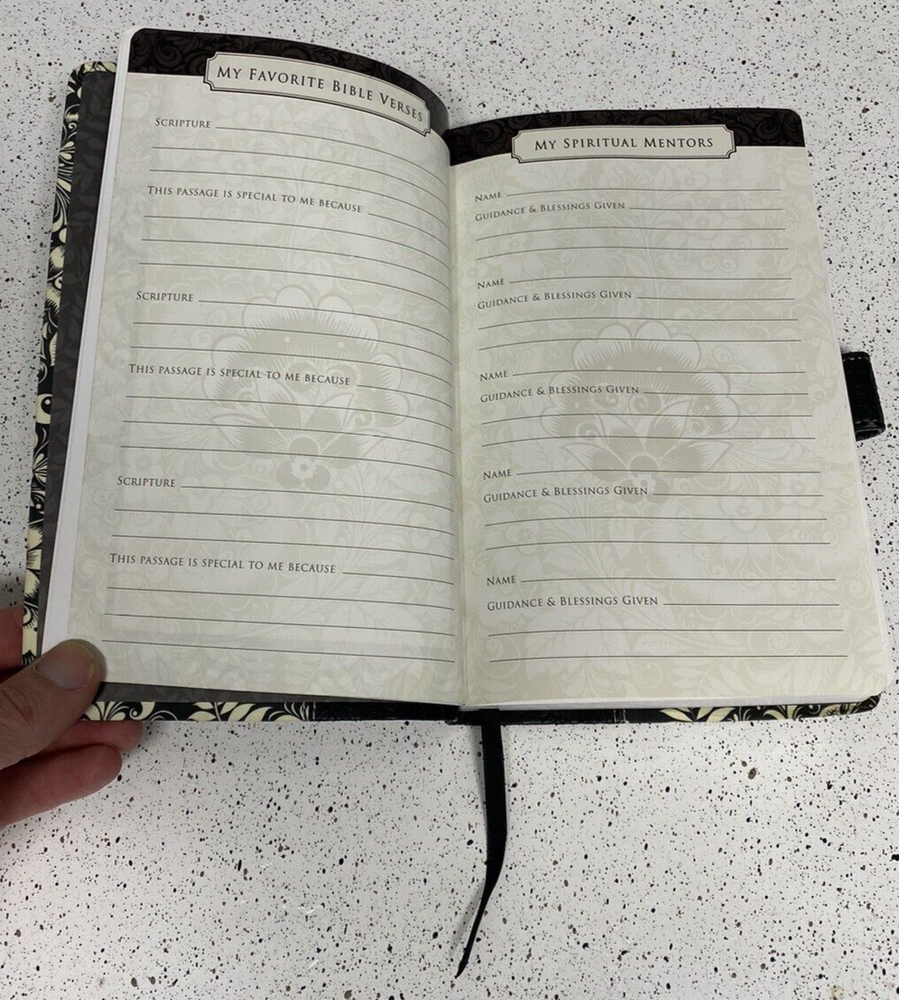 MY FAVORITE BIBLE VERSES
SCRIPTURE
THIS PASSAGE IS SPECIAL TO ME BECAUSE
SCRIPTURE
THIS PASSAGE IS SPECIAL TO ME BECAUSE
SCRIPTURE
THIS PASSAGE IS SPECIAL TO ME BECAUSE
MY SPIRITUAL MENTORS
NAME
GUIDANCE & BLESSINGS GIVEN
NAME
GUIDANCE & BLESSINGS GIVEN
NAME
GUIDANCE & BLESSINGS GIVEN
NAME
GUIDANCE & BLESSINGS GIVEN
NAME
GUIDANCE & BLESSINGS GIVEN